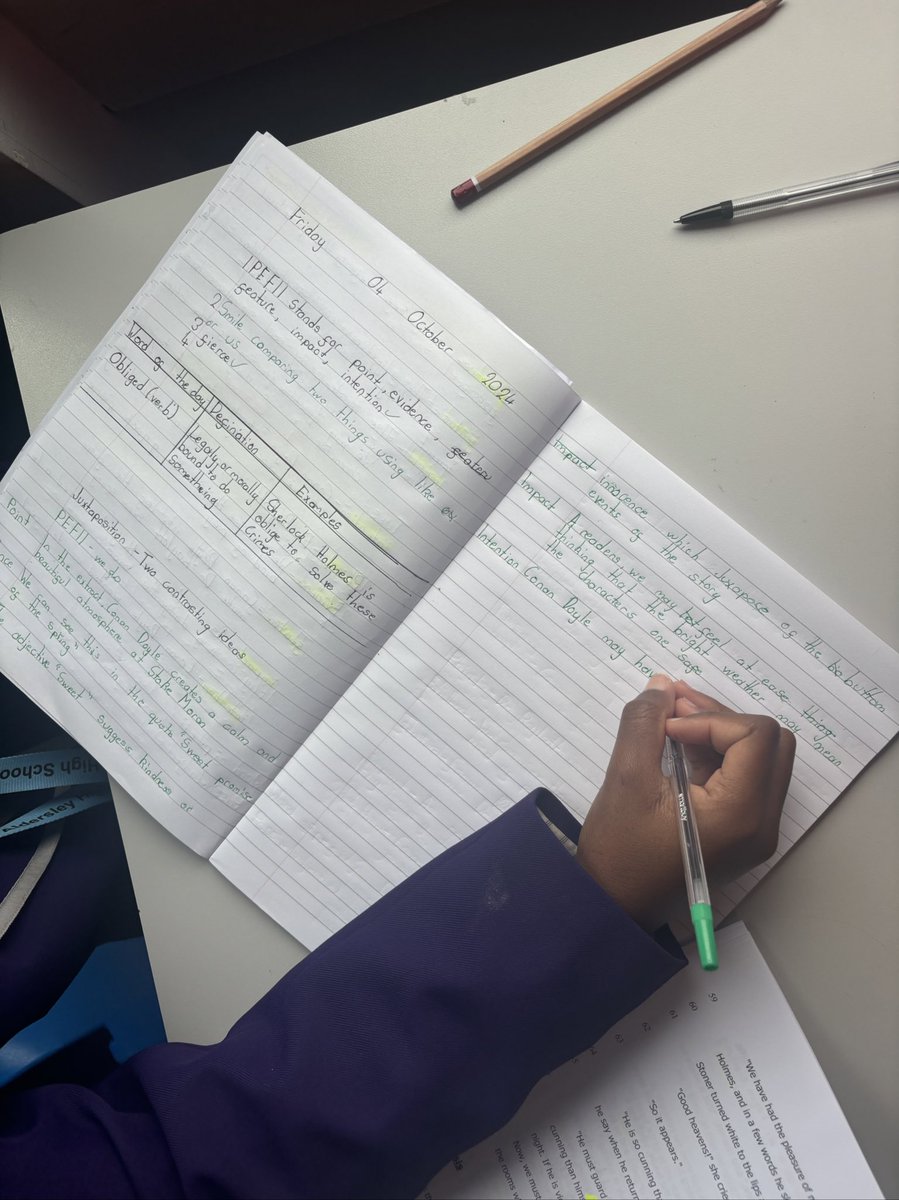 Friday 04 October 2024
1 PEFII stands for point, evidence, featuru
feature, impact, intention ✓
2 Smile comparing two things using like or
3 or us
4 fierce ✓
Word of the day Deginiation Examples
Obliged (verb)
Legally or morally
bound to do
something
Sherlock Holmes is
oblige to solve these
crimes
Juxtaposition - Two contrasting ideas
PEFII - we do
Point In the extract, Conan Doyle creates a calm and
beautiful atmosphere at Stoke Moran
We can see this in the quote "Sweet promise
of the spring"
adjective "Sweet" suggest kindness or
innocence which juxtapose of this
events of the story
Impact
Impact A readers, we may feel at ease thing
thinking that the bright weather may mean
the characters one safe
Intention Conan Doyle may hav
High Schoo
Aldersley H
59
60
61
62
63
"We have had the pleasure of
Holmes, and in a few words he s
Stoner turned white to the lips
"Good heavens!" she crie
"So it appears."
"He is so cunning th
he say when he retur
"He must guard
cunning than him
night. If he is vi
Now, we must
the rooms w